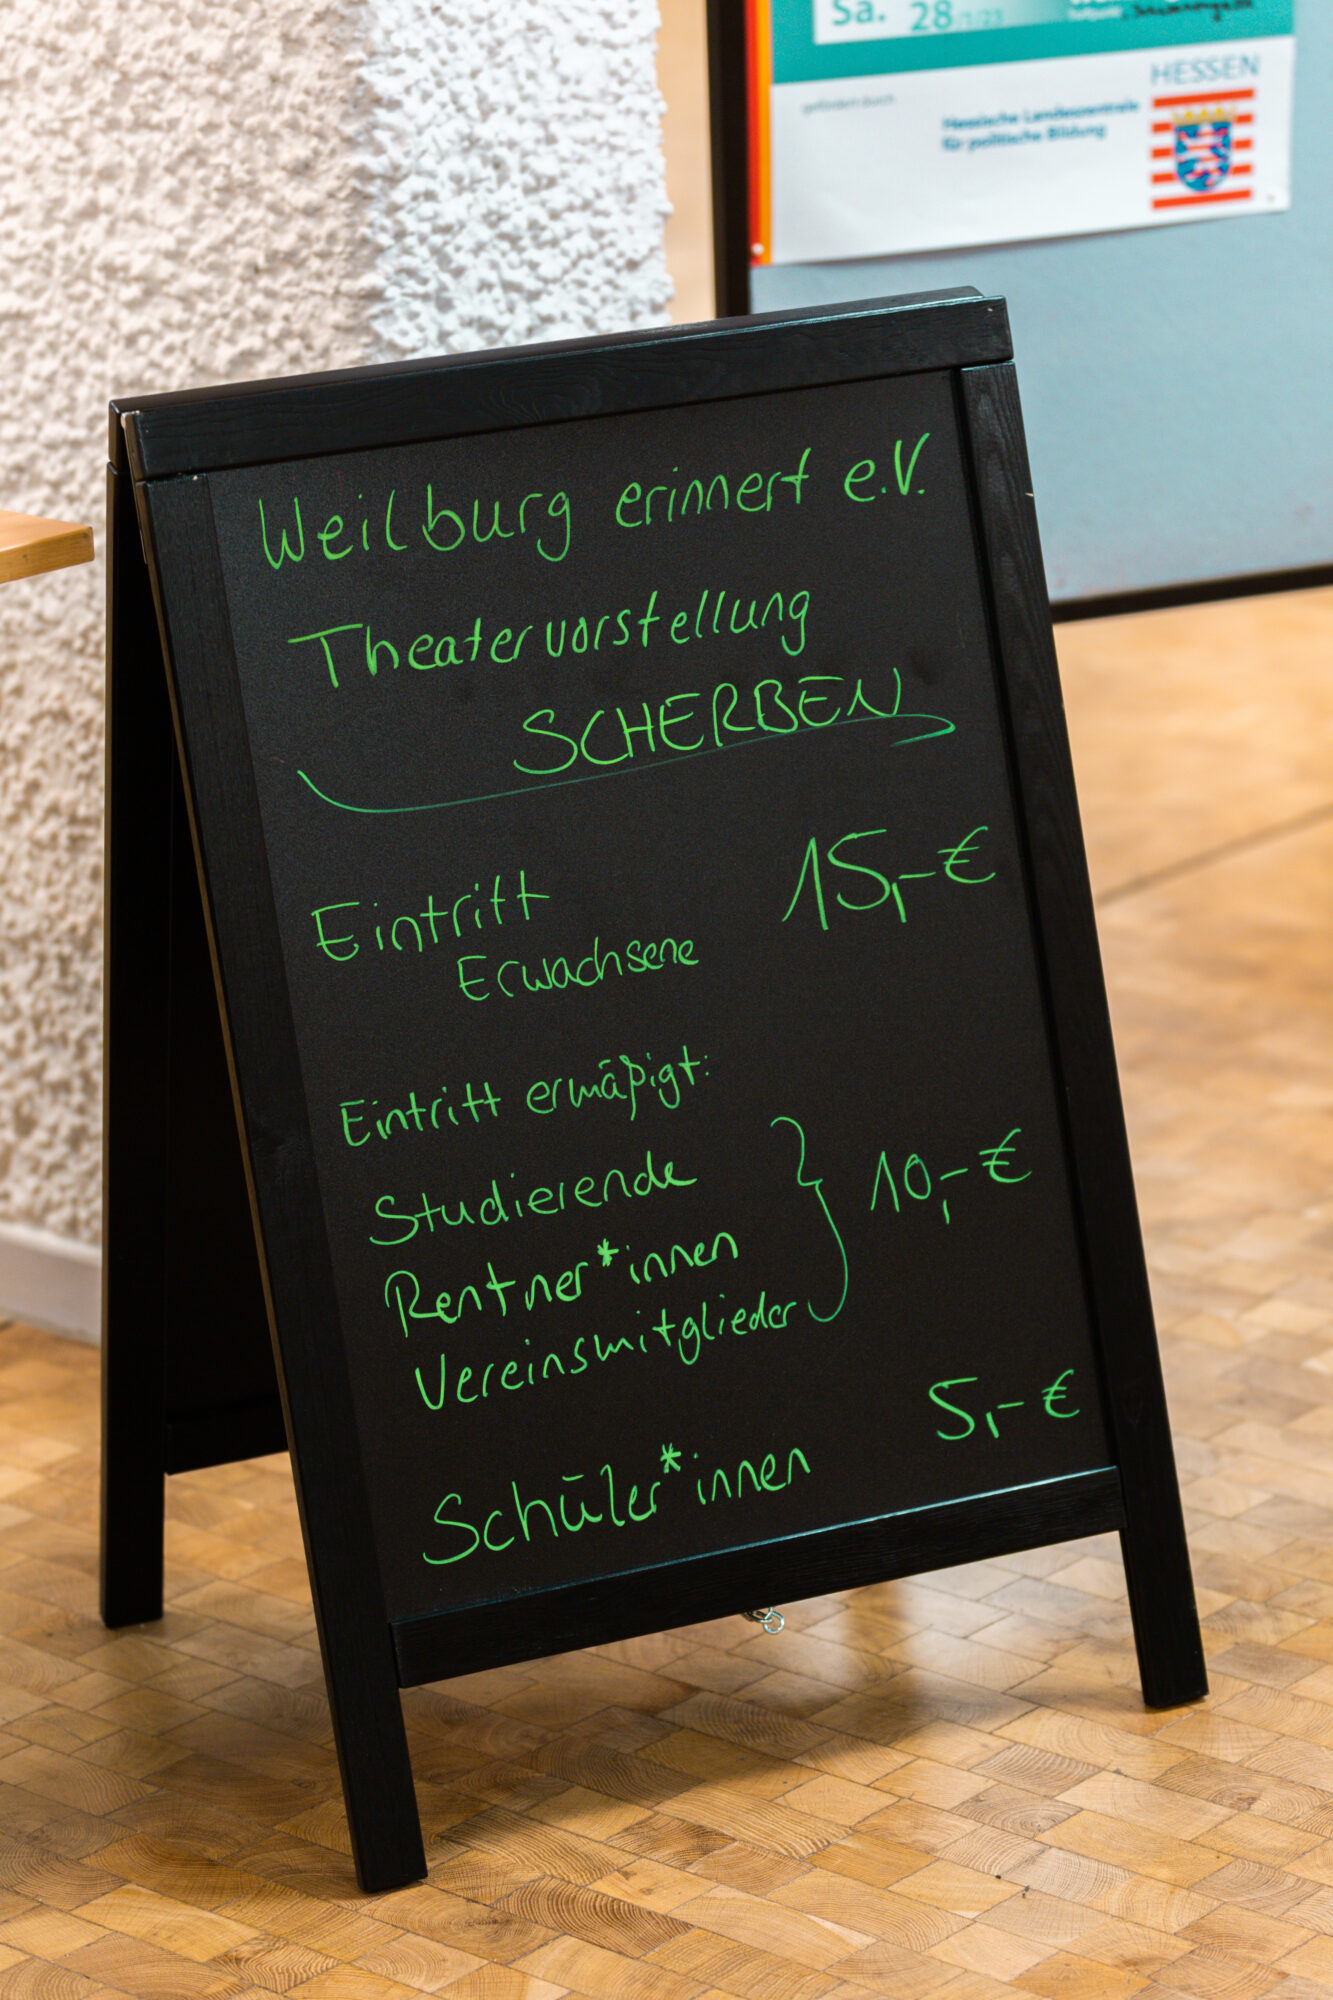 Sa. 28/1/23
HESSEN
gefördert durch
Hessische Landeszentrale
für politische Bildung
Weilburg erinnert e.V.
Theatervorstellung
SCHERBEN
Eintritt 15,-€
Erwachsene
Eintritt ermäßigt:
Studierende
Rentner*innen 10,-€
Vereinsmitglieder
Schüler*innen 5,-€